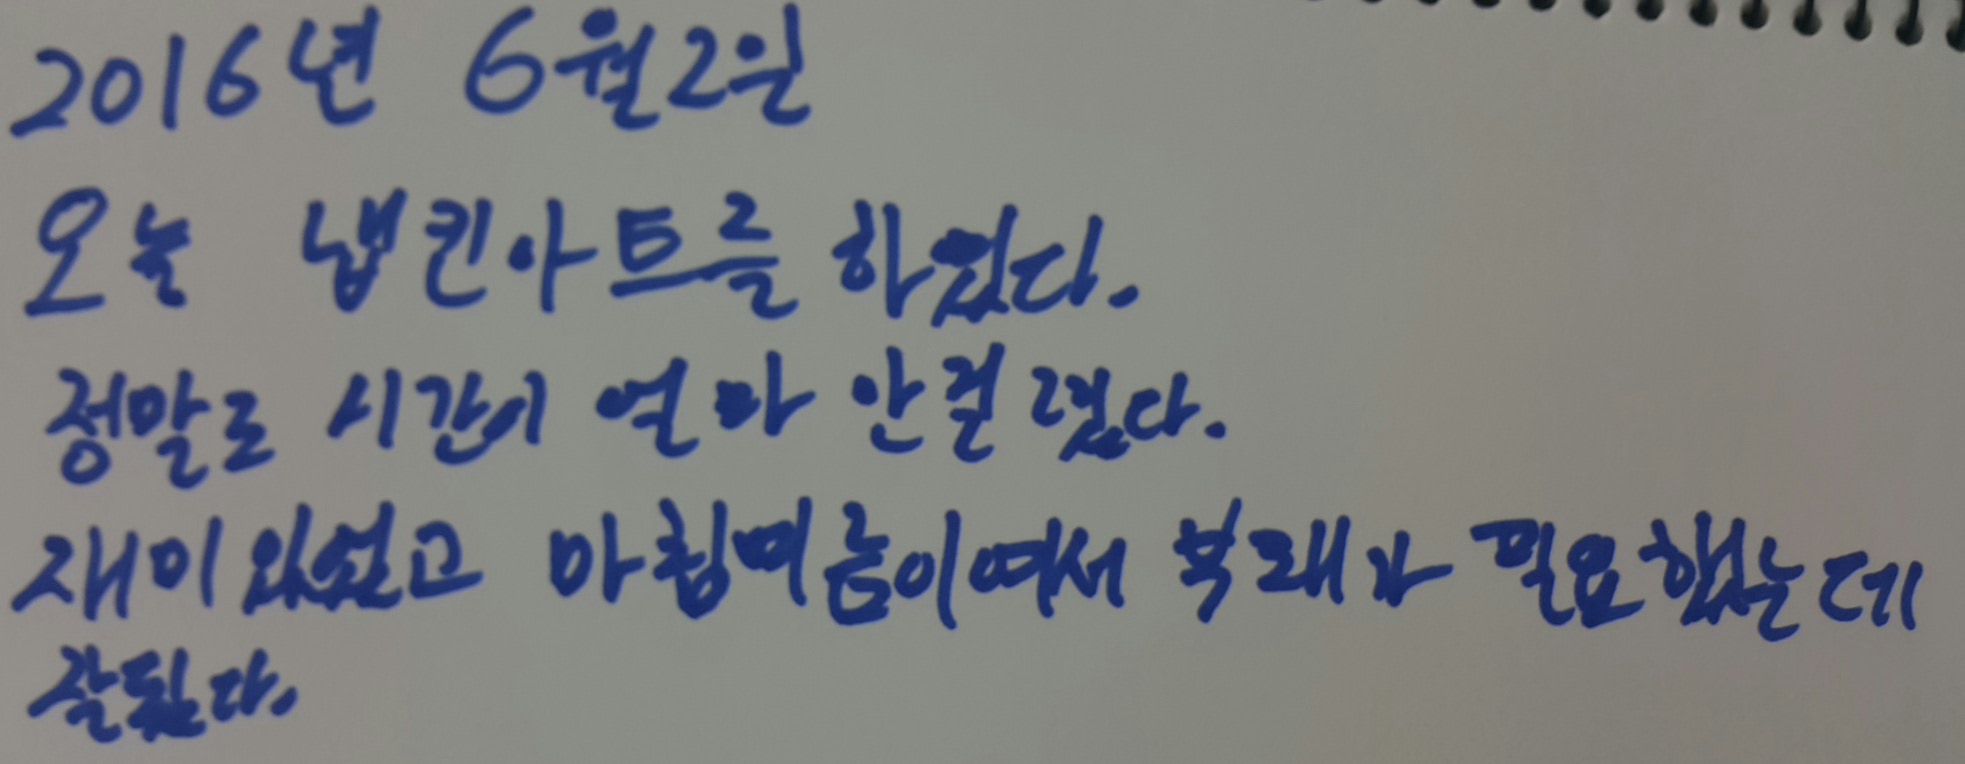 2016년 6월2일
오늘 냅킨아트를 하였다.
정말로 시간이 얼마 안걸렸다.
재미있었고 마침여름이여서 부채가 필요했는데
잘됬다.